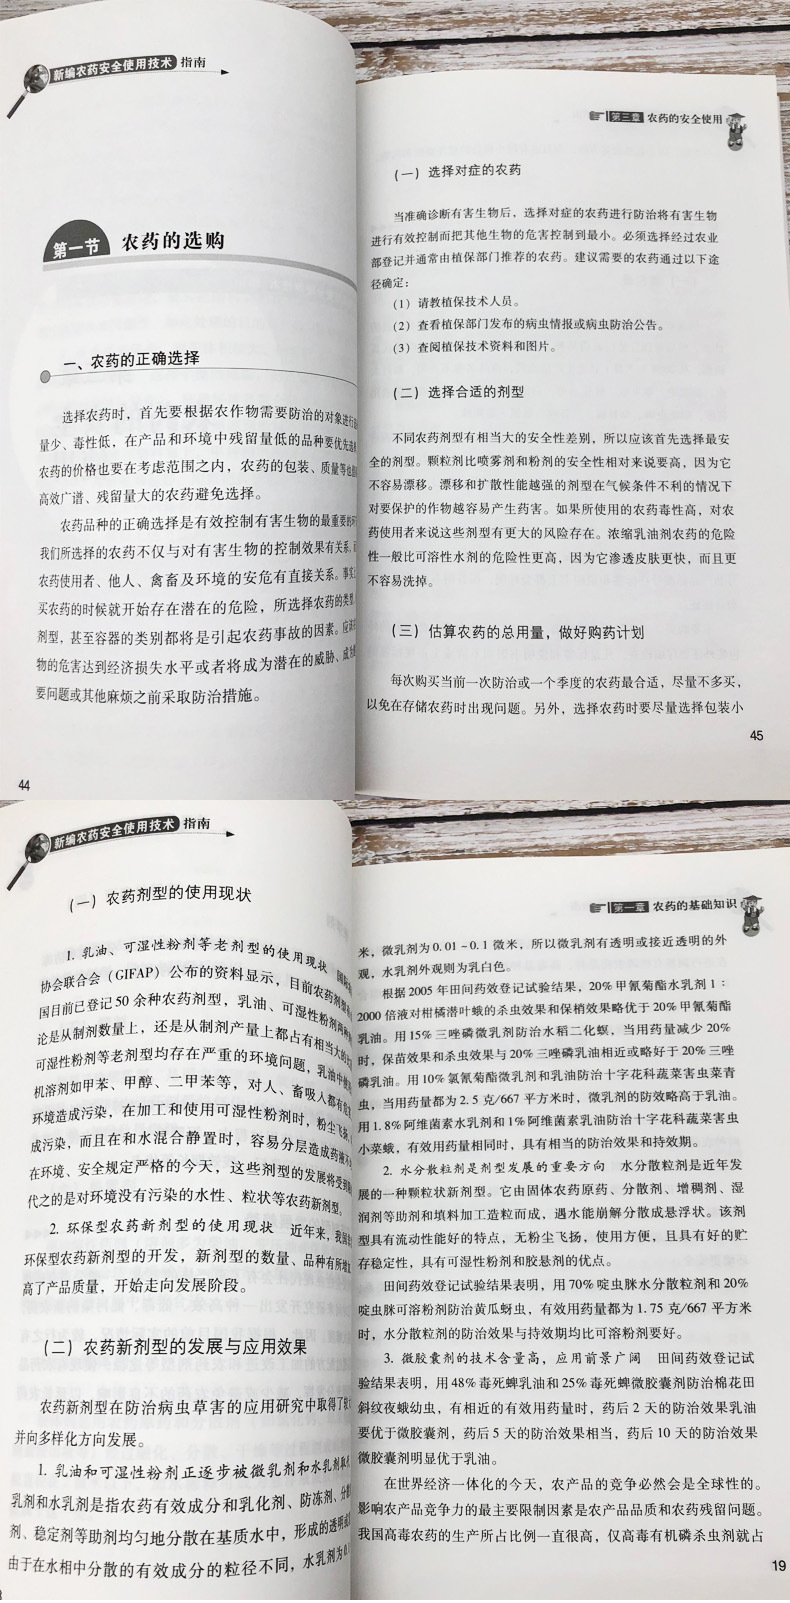 新编农药安全使用技术 指南
第一节 农药的选购
一、农药的正确选择
选择农药时，首先要根据农作物需要防治的对象进行
量少、毒性低，在产品和环境中残留量低的品种要优先选
农药的价格也要在考虑范围之内，农药的包装、质量等也
高效广谱、残留量大的农药避免选择。
农药品种的正确选择是有效控制有害生物的最重要的
我们所选择的农药不仅与对有害生物的控制效果有关系，
农药使用者、他人、禽畜及环境的安危有直接关系。事实
买农药的时候就开始存在潜在的危险，所选择农药的类型
剂型，甚至容器的类别都将是引起农药事故的因素。应
物的危害达到经济损失水平或者将成为潜在的威胁、成为
要问题或其他麻烦之前采取防治措施。
44
第三章 农药的安全使用
（一）选择对症的农药
当准确诊断有害生物后，选择对症的农药进行防治将有害生物
进行有效控制而把其他生物的危害控制到最小。必须选择经过农业
部登记并通常由植保部门推荐的农药。建议需要的农药通过以下途
径确定：
（1）请教植保技术人员。
（2）查看植保部门发布的病虫情报或病虫防治公告。
（3）查阅植保技术资料和图片。
（二）选择合适的剂型
不同农药剂型有相当大的安全性差别，所以应该首先选择最安
全的剂型。颗粒剂比喷雾剂和粉剂的安全性相对来说要高，因为它
不容易漂移。漂移和扩散性能越强的剂型在气候条件不利的情况下
对要保护的作物越容易产生药害。如果所使用的农药毒性高，对农
药使用者来说这些剂型有更大的风险存在。浓缩乳油剂农药的危险
性一般比可溶性水剂的危险性更高，因为它渗透皮肤更快，而且更
不容易洗掉。
（三）估算农药的总用量，做好购药计划
每次购买当前一次防治或一个季度的农药最合适，尽量不多买，
以免在存储农药时出现问题。另外，选择农药时要尽量选择包装小
45
新编农药安全使用技术 指南
（一）农药剂型的使用现状
1. 乳油、可湿性粉剂等老剂型的使用现状
协会联合会（GIFAP）公布的资料显示，目前农药剂型
国目前已登记50余种农药剂型，乳油、可湿性粉剂两种
论是从制剂数量上，还是从制剂产量上都占有相当大的
可湿性粉剂等老剂型均存在严重的环境问题，乳油中使
机溶剂如甲苯、甲醇、二甲苯等，对人、畜吸入都有危
环境造成污染，在加工和使用可湿性粉剂时，粉尘飞扬，
成污染，而且在和水混合静置时，容易分层造成药液不
在环境、安全规定严格的今天，这些剂型的发展将受到
代之的是对环境没有污染的水性、粒状等农药新剂型。
2. 环保型农药新剂型的使用现状 近年来，我国
环保型农药新剂型的开发，新剂型的数量、品种有所增加
高了产品质量，开始走向发展阶段。
（二）农药新剂型的发展与应用效果
农药新剂型在防治病虫草害的应用研究中取得了较
并向多样化方向发展。
1. 乳油和可湿性粉剂正逐步被微乳剂和水乳剂
乳剂和水乳剂是指农药有效成分和乳化剂、防冻剂、分
剂、稳定剂等助剂均匀地分散在基质水中，形成的透明或
由于在水相中分散的有效成分的粒径不同，水乳剂为0.
第一章 农药的基础知识
米，微乳剂为0.01~0.1微米，所以微乳剂有透明或接近透明的外
观，水乳剂外观则为乳白色。
根据2005年田间药效登记试验结果，20%甲氰菊酯水乳剂1：
2000倍液对柑橘潜叶蛾的杀虫效果和保梢效果略优于20%甲氰菊酯
乳油。用15%三唑磷微乳剂防治水稻二化螟，当用药量减少20%
时，保苗效果和杀虫效果与20%三唑磷乳油相近或略好于20%三唑
磷乳油。用10%氯氰菊酯微乳剂和乳油防治十字花科蔬菜害虫菜青
虫，当用药量都为2.5克/667平方米时，微乳剂的防效略高于乳油。
用1.8%阿维菌素水乳剂和1%阿维菌素乳油防治十字花科蔬菜害虫
小菜蛾，有效用药量相同时，具有相当的防治效果和持效期。
2. 水分散粒剂是剂型发展的重要方向 水分散粒剂是近年发
展的一种颗粒状新剂型。它由固体农药原药、分散剂、增稠剂、湿
润剂等助剂和填料加工造粒而成，遇水能崩解分散成悬浮状。该剂
型具有流动性能好的特点，无粉尘飞扬，使用方便，且具有好的贮
存稳定性，具有可湿性粉剂和胶悬剂的优点。
田间药效登记试验结果表明，用70%啶虫脒水分散粒剂和20%
啶虫脒可溶粉剂防治黄瓜蚜虫，有效用药量都为1.75克/667平方米
时，水分散粒剂的防治效果与持效期均比可溶粉剂要好。
3. 微胶囊剂的技术含量高，应用前景广阔 田间药效登记试
验结果表明，用48%毒死蜱乳油和25%毒死蜱微胶囊剂防治棉花田
斜纹夜蛾幼虫，有相近的有效用药量时，药后2天的防治效果乳油
要优于微胶囊剂，药后5天的防治效果相当，药后10天的防治效果
微胶囊剂明显优于乳油。
在世界经济一体化的今天，农产品的竞争必然会是全球性的。
影响农产品竞争力的最主要限制因素是农产品品质和农药残留问题。
我国高毒农药的生产所占比例一直很高，仅高毒有机磷杀虫剂就占
19